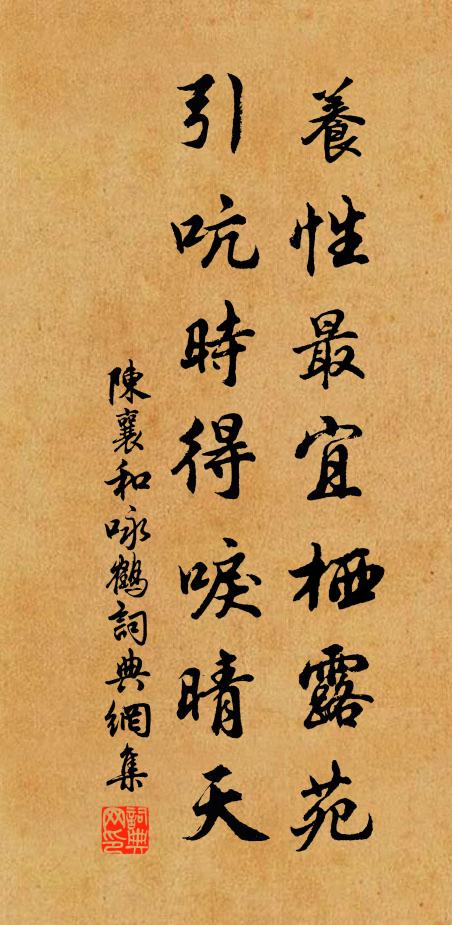 養性最宜栖露苑
引吭時得唳晴天
陳襄和咏鶴詞典網集
詞典網印